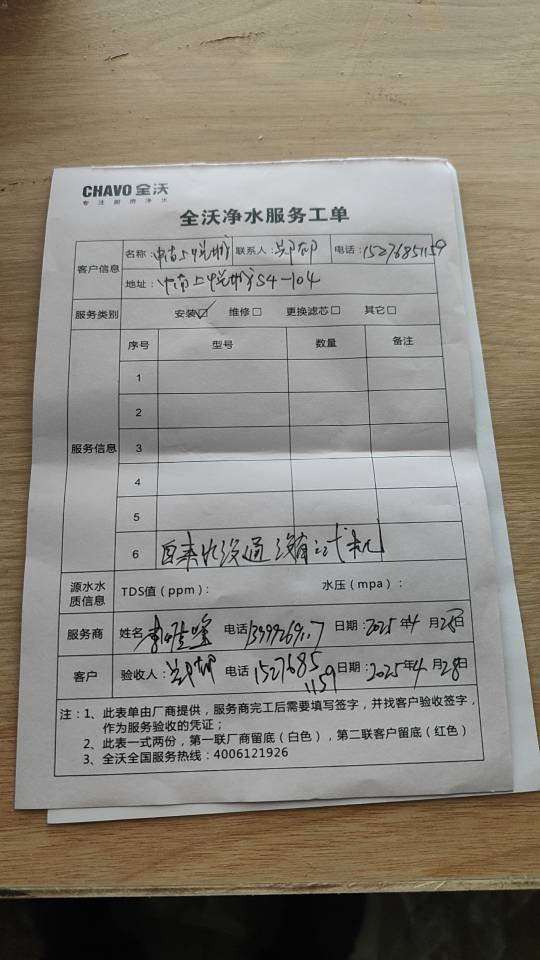 CHAVO 全沃
专注厨房净水
全沃净水服务工单
客户信息 名称：中南上悦城 联系人： 电话：15276851159
地址：中南上悦城 S4-104
服务类别 安装☑ 维修□ 更换滤芯□ 其它□
服务信息 序号 型号 数量 备注
1
2
3
4
5
6 自来水没通 没有试机
源水水质信息 TDS值（ppm）： 水压（mpa）：
服务商 姓名 电话 日期：2025年4月28日
客户 验收人： 电话 15276851159 日期：2025年4月28日
注：1、此表单由厂商提供，服务商完工后需要填写签字，并找客户验收签字，
作为服务验收的凭证；
2、此表一式两份，第一联厂商留底（白色），第二联客户留底（红色）
3、全沃全国服务热线：4006121926